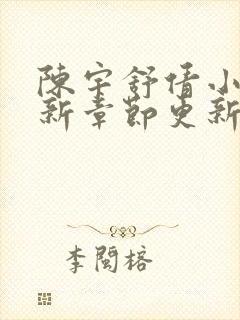 陳宇舒情小
新章節更新
李閩榕